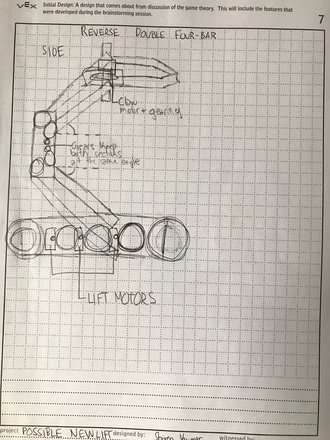 VEX Initial Design: A design that comes about from discussion of the game theory. This will include the features that
were developed during the brainstorming session.
7
REVERSE DOUBLE FOUR-BAR
SIDE
Claw
motor + gearing
Gears keep
both sections
at the same angle
LIFT MOTORS
project POSSIBLE NEW LIFT designed by: witnessed by